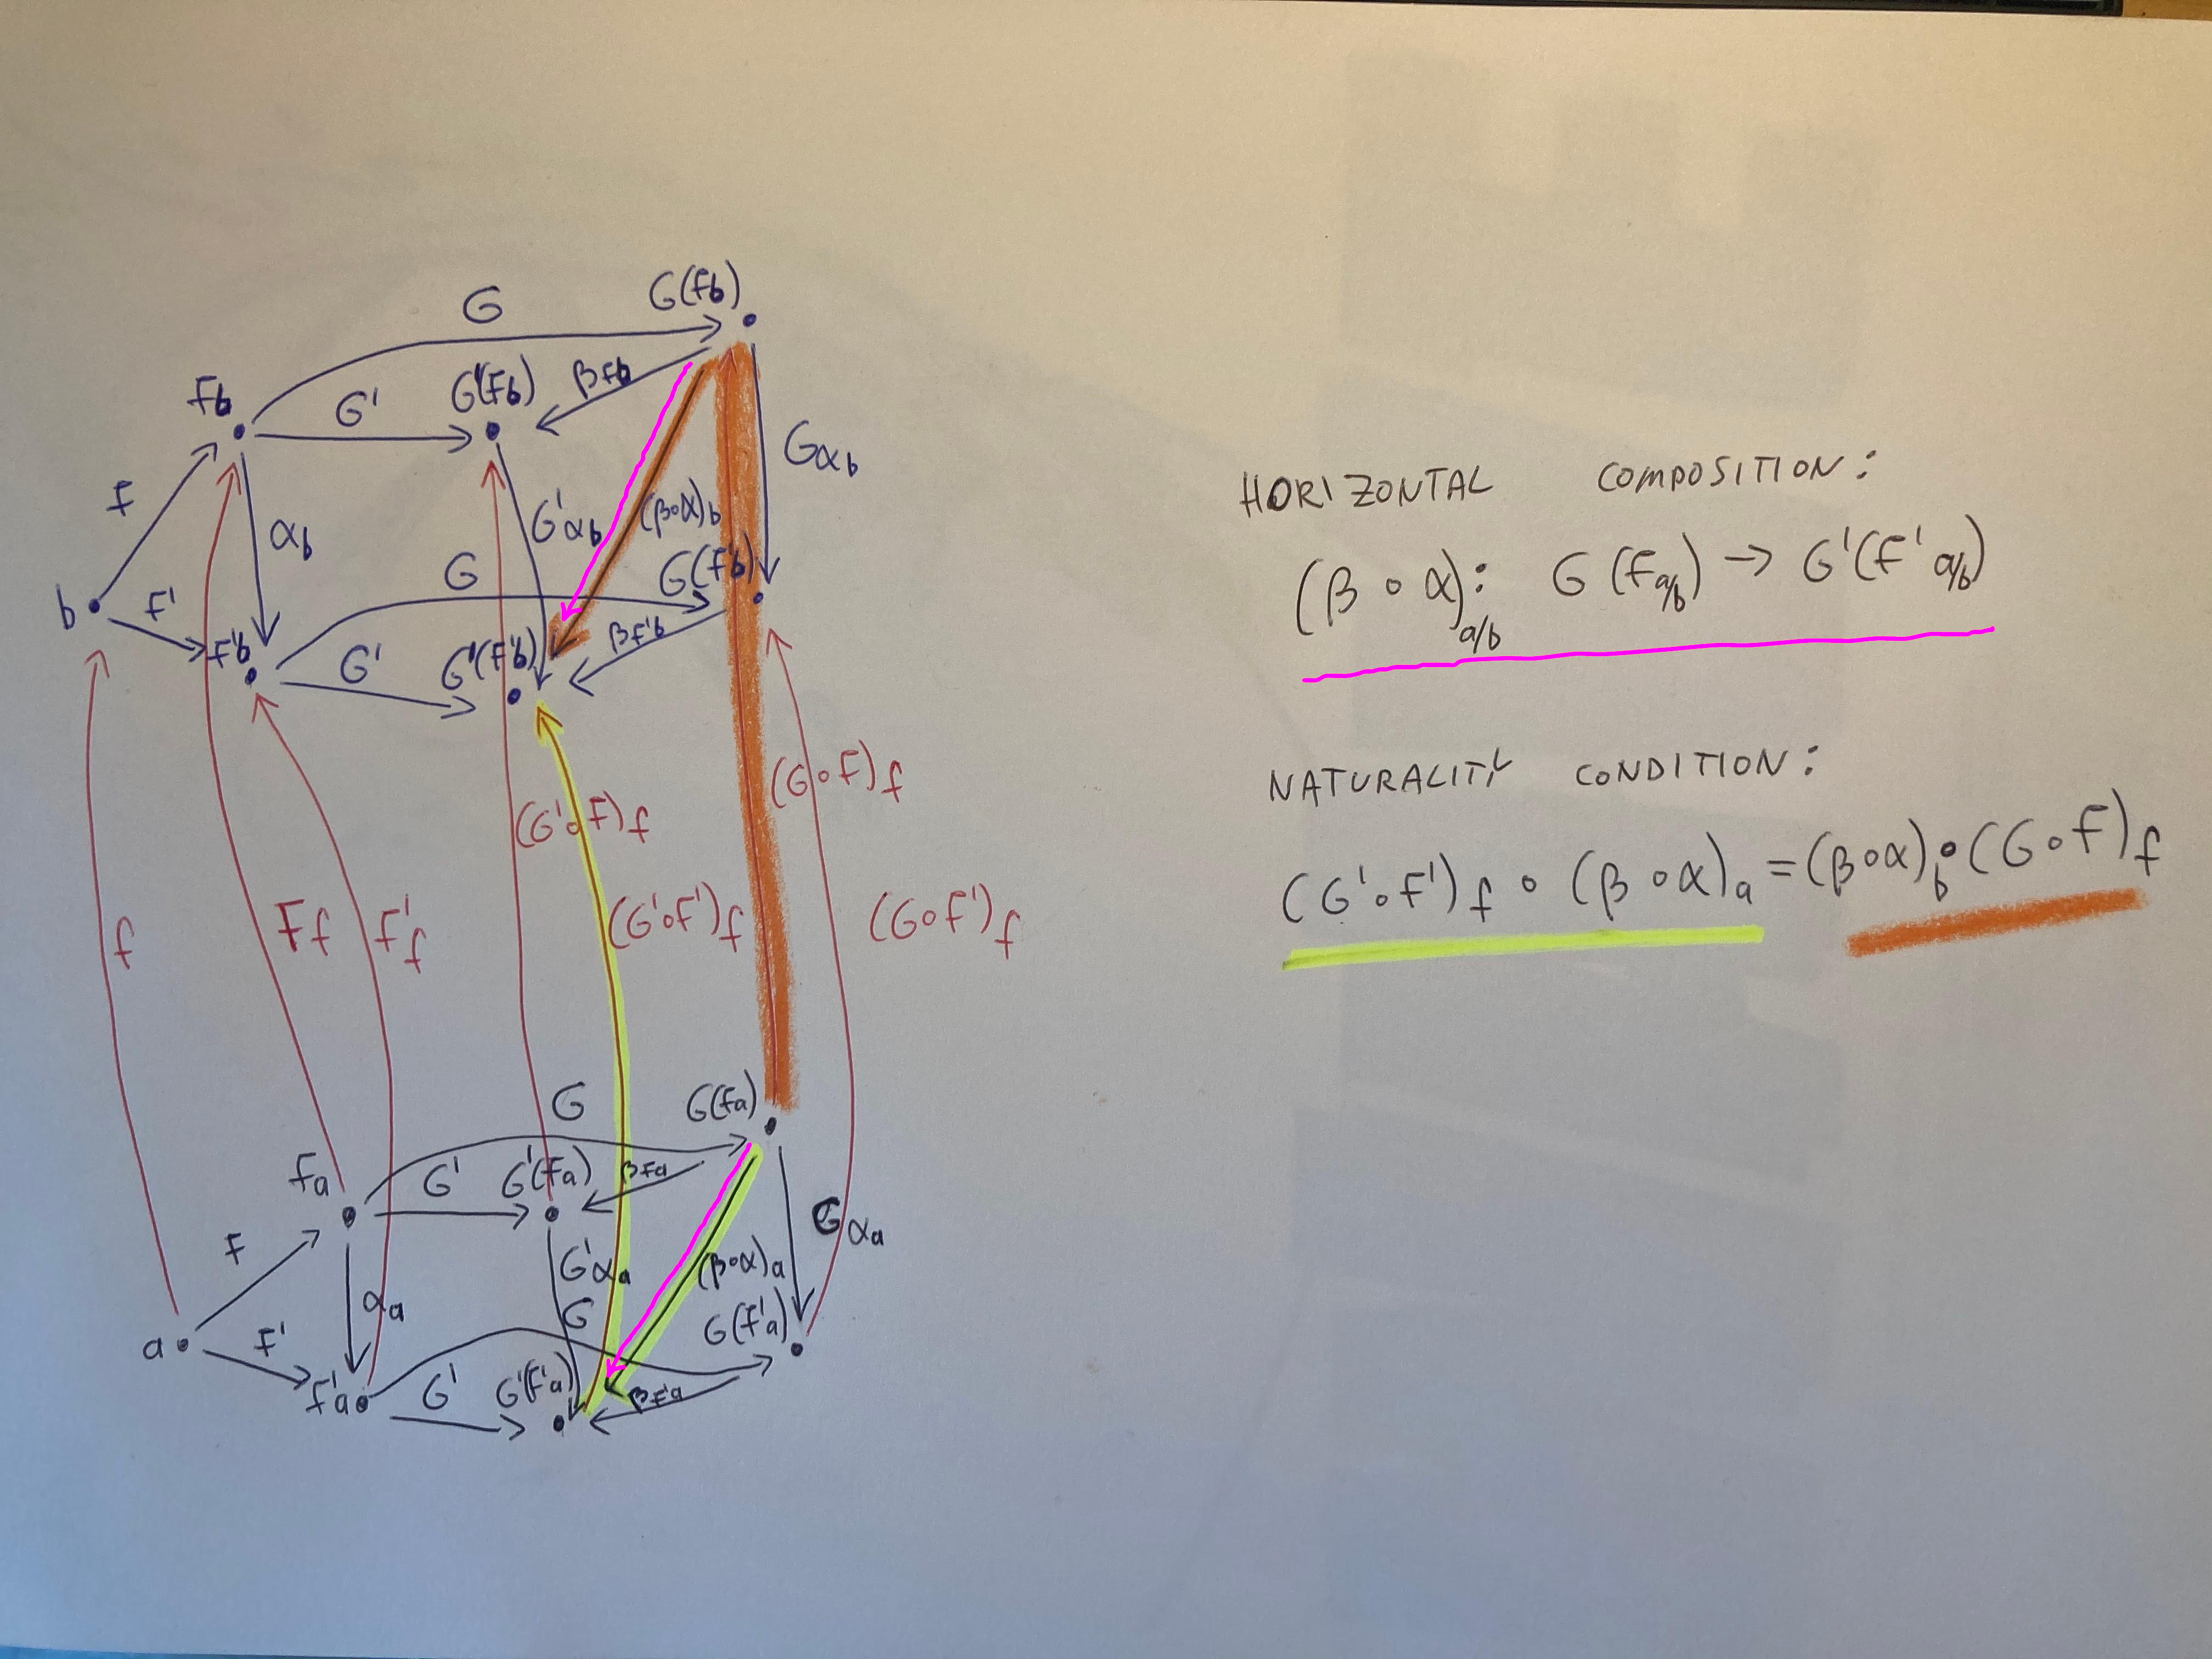 G
G(Fb)
Fb
G'
G'(Fb)
βFb
Gαb
F
αb
G'αb
(β∘α)b
G
G(F'b)
b
F'
F'b
G'
G'(F'b)
βF'b
(G∘F)f
(G'∘F)f
f
Ff
F'f
(G'∘F')f
(G∘F')f
G
G(Fa)
Fa
G'
G'(Fa)
βFa
F
G'αa
(β∘α)a
Gαa
αa
G
G(F'a)
a
F'
F'a
G'
G'(F'a)
βF'a
HORIZONTAL COMPOSITION:
(β ∘ α)a/b: G(Fa/b) → G'(F'a/b)
NATURALITY CONDITION:
(G'∘F')f ∘ (β∘α)a = (β∘α)b ∘ (G∘F)f